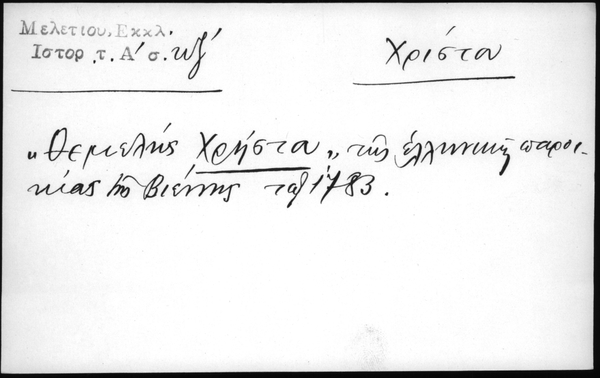 Μελετίου, Εκκλ.
Ιστορ. τ. Α' σ. κζ'
Χρίστα
"Θεμελής Χρήστα" τῆς ἑλληνικῆς παροι-
κίας τῆς Βιέννης τοῦ 1783.